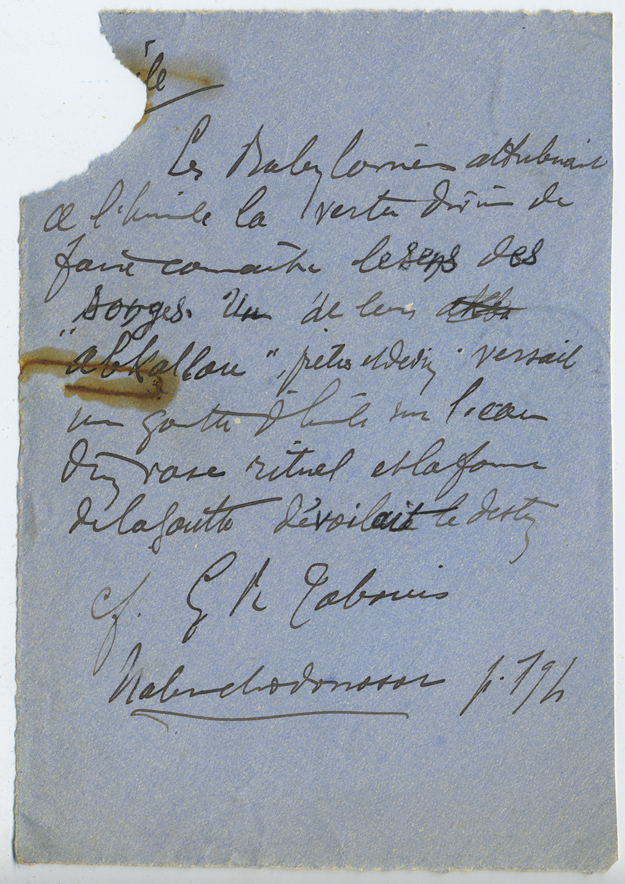 ile
Les Babyloniens attribuaient
à l'huile la vertu divine de
faire connaître le sens des
songes. Un de leurs
"abkallou", prêtre et devin versait
une goutte d'huile sur l'eau
d'un vase rituel et la forme
de la goutte dévoilait le destin
cf. G R Tabouis
Nabuchodonosor p. 194